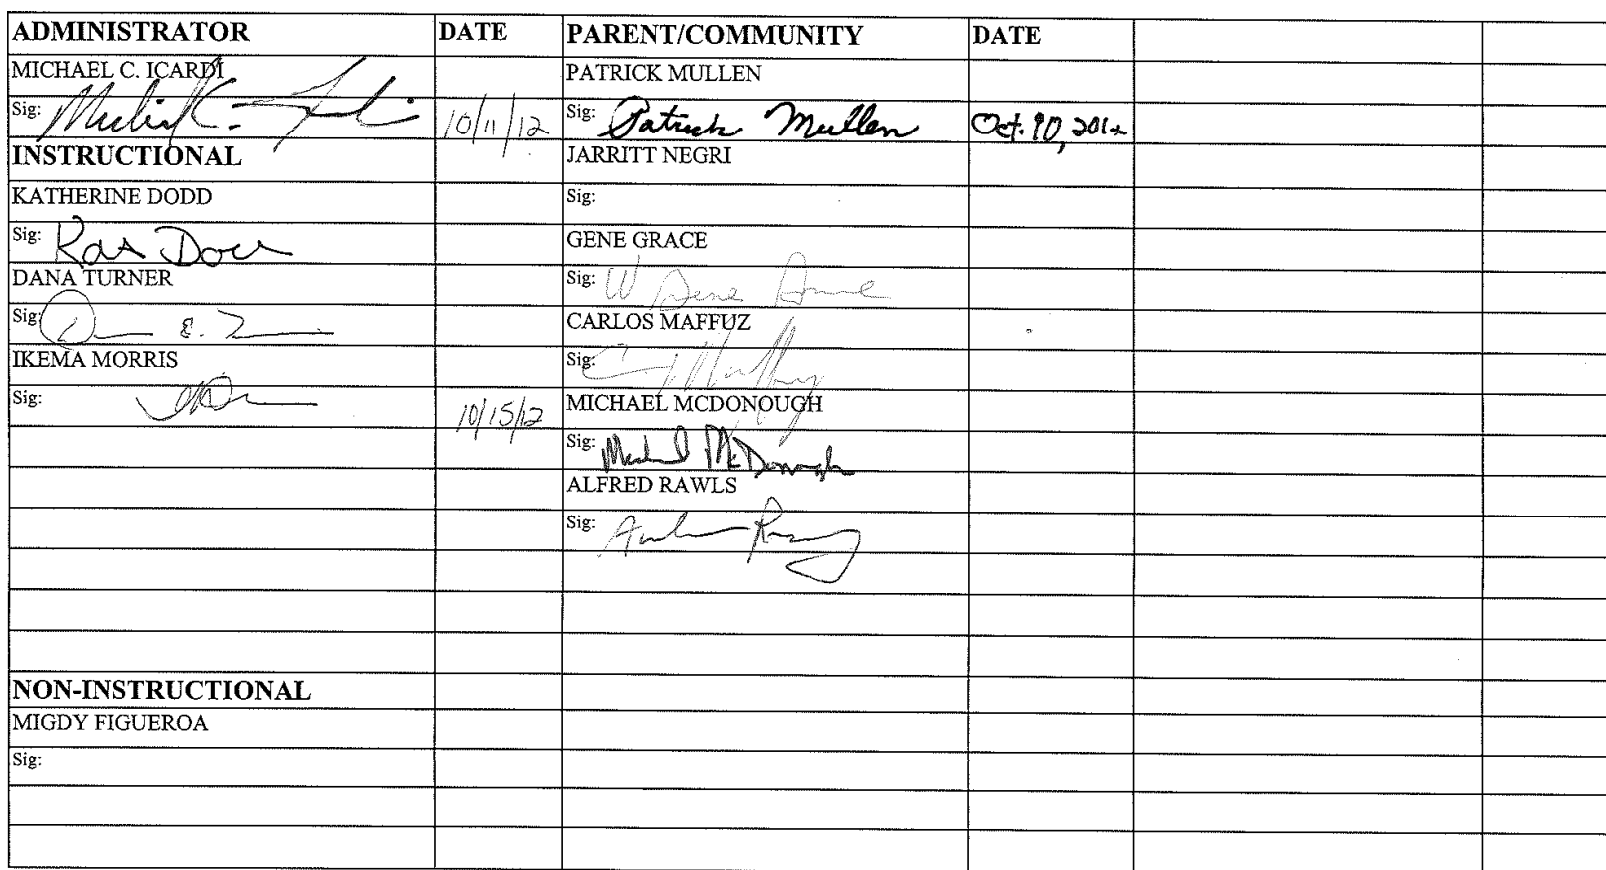 ADMINISTRATOR DATE PARENT/COMMUNITY DATE
MICHAEL C. ICARDI PATRICK MULLEN
Sig: 10/11/12 Sig: Patrick Mullen Oct. 10, 2012
INSTRUCTIONAL JARRITT NEGRI
KATHERINE DODD Sig:
Sig: GENE GRACE
DANA TURNER Sig: W Gene
Sig: CARLOS MAFFUZ
IKEMA MORRIS Sig:
Sig: 10/15/12 MICHAEL MCDONOUGH
Sig: Michael McDonough
ALFRED RAWLS
Sig:
NON-INSTRUCTIONAL
MIGDY FIGUEROA
Sig: